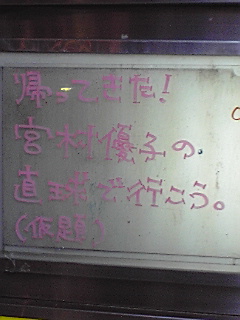 帰ってきた!
宮村優子の
直球で行こう。
(仮題)